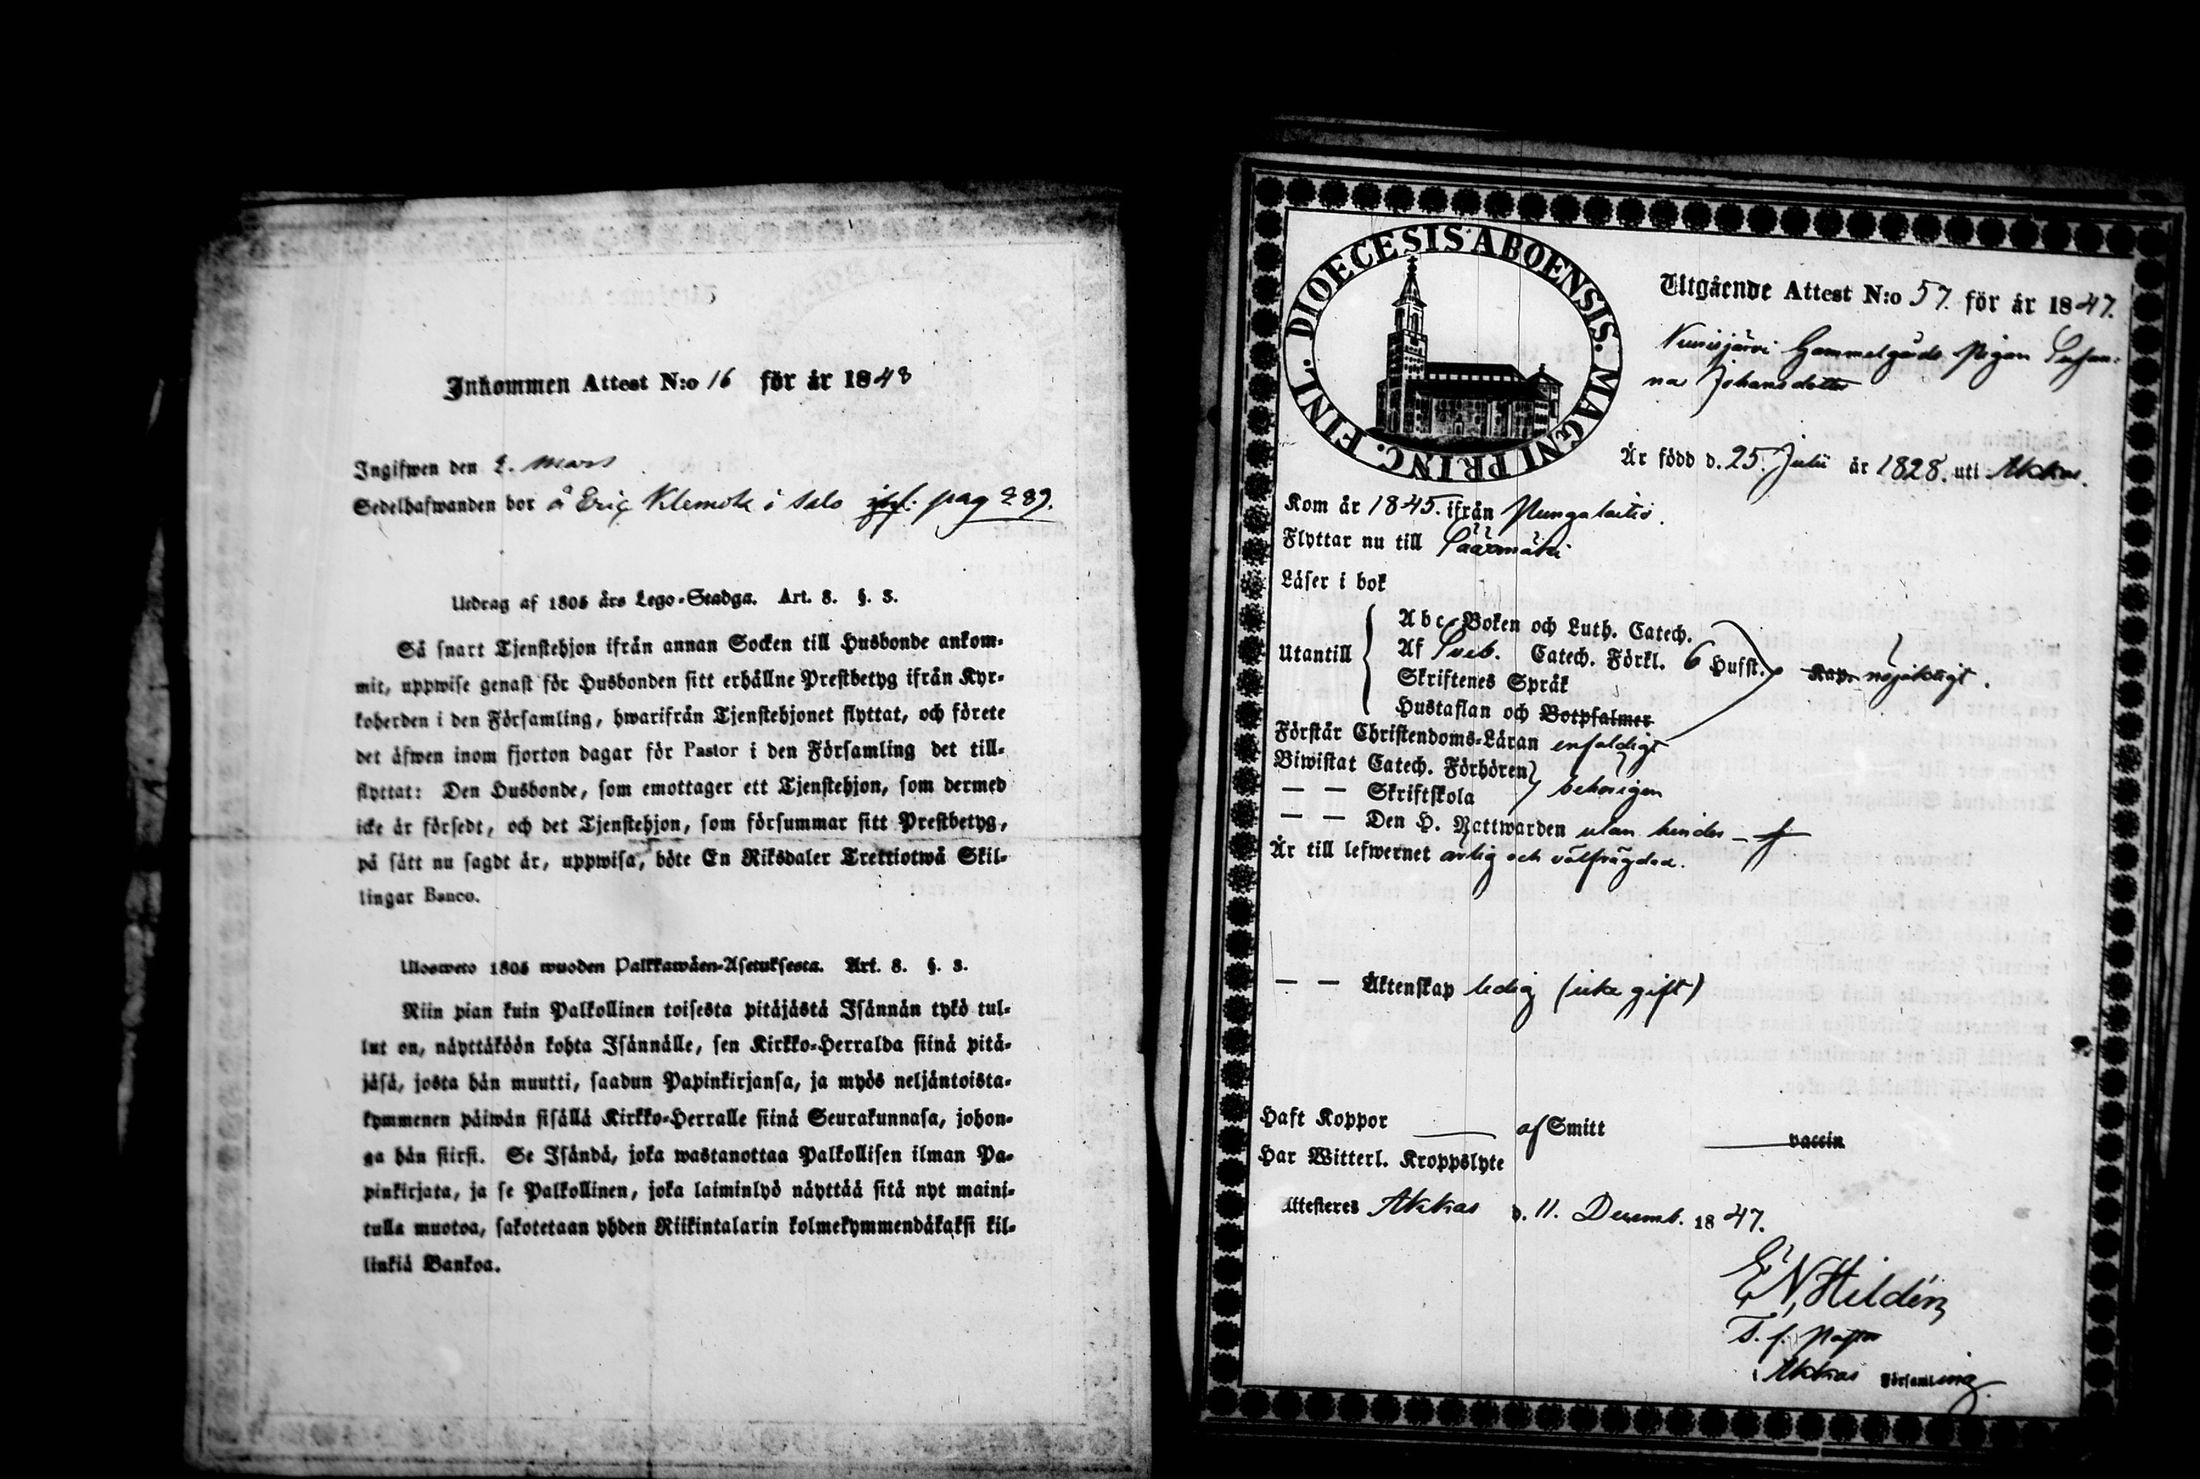 Inkommen Attest N:o 16 för år 1848
Ingifwen den 2. Mars
Sedelhafwanden bor å Eric Klemola i Salo pag 289.
Utdrag af 1805 års Lego-Stadga. Art. 8. §. 3.
Så snart Tjenstehjon ifrån annan Socken till Husbonde ankom-
mit, uppwise genast för Husbonden sitt erhållne Prestbetyg ifrån Kyr-
koherden i den Församling, hwarifrån Tjenstehjonet flyttat, och förete
det äfwen inom fjorton dagar för Pastor i den Församling det till-
flyttat: Den Husbonde, som emottager ett Tjenstehjon, som dermed
icke är försedt, och det Tjenstehjon, som försummar sitt Prestbetyg,
på sätt nu sagdt är, uppwisa, böte En Riksdaler Trettiotwå Skil-
lingar Banco.
Ulosweto 1805 wuoden Palkkawäen-Asetuksesta. Art. 8. §. 3.
Niin pian kuin Palkollinen toisesta pitäjästä Isännän tykö tul-
lut on, näyttäköön kohta Isännälle, sen Kirkko-Herralda siinä pitä-
jäsä, josta hän muutti, saadun Papinkirjansa, ja myös neljäntoista-
kymmenen päiwän sisällä Kirkko-Herralle siinä Seurakunnasa, johon-
ga hän siirsi. Se Isändä, joka wastanottaa Palkollisen ilman Pa-
pinkirjata, ja se Palkollinen, joka laiminlyö näyttää sitä nyt maini-
tulla muotoa, sakotetaan yhden Riikintalarin kolmekymmendäkaksi kil-
linkiä Bankoa.
DIOECESIS ABOENSIS. MAGNI PRINC. FINL.
Utgående Attest N:o 57. för år 1847.
Gammelgårds pigan Susan-
na Johansdotter
Är född d. 25. Julii år 1828. uti Akkas.
Kom år 1845. ifrån Pungalaitio.
Flyttar nu till Säärmäki
Läser i bok
Abc-Boken och Luth. Catech.
Utantill Af Sveb. Catech. Förkl. 6 Hufst. Kapr nöjaktigt.
Skriftenes Språk
Hustaflan och Botpsalmer
Förstår Christendoms-Läran enfaldigt
Biwistat Catech. Förhören
— — Skriftskola behörigen
— — Den H. Nattwarden utan hinder
Är till lefwernet ärlig och välfrägdad.
— — Äktenskap ledig (icke gift)
Haft Koppor af Smitt vaccin
Har Witterl. Kroppslyte
Attesteres Akkas d. 11. Decemb. 1847.
E N Hildén
T. f. Pastor
i Akkas Församling.